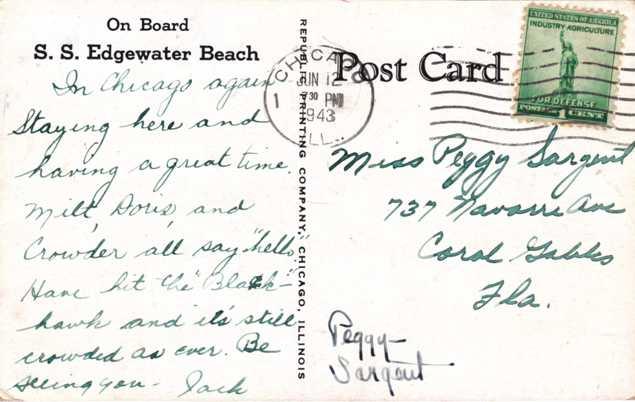 On Board
S. S. Edgewater Beach
In Chicago again
Staying here and
having a great time.
Milt, Doris, and
Crowder all say "hello."
Have hit the "Black-
hawk and it's still
crowded as ever. Be
seeing you - Jack
REPUBLIC PRINTING COMPANY, CHICAGO, ILLINOIS
CHICAGO
JUN 12
1 30 PM
1943
ILL.
Post Card
UNITED STATES OF AMERICA
INDUSTRY AGRICULTURE
FOR DEFENSE
POSTAGE 1 CENT
Miss Peggy Sargent
737 Navarre Ave
Coral Gables
Fla.
Peggy
Sargent